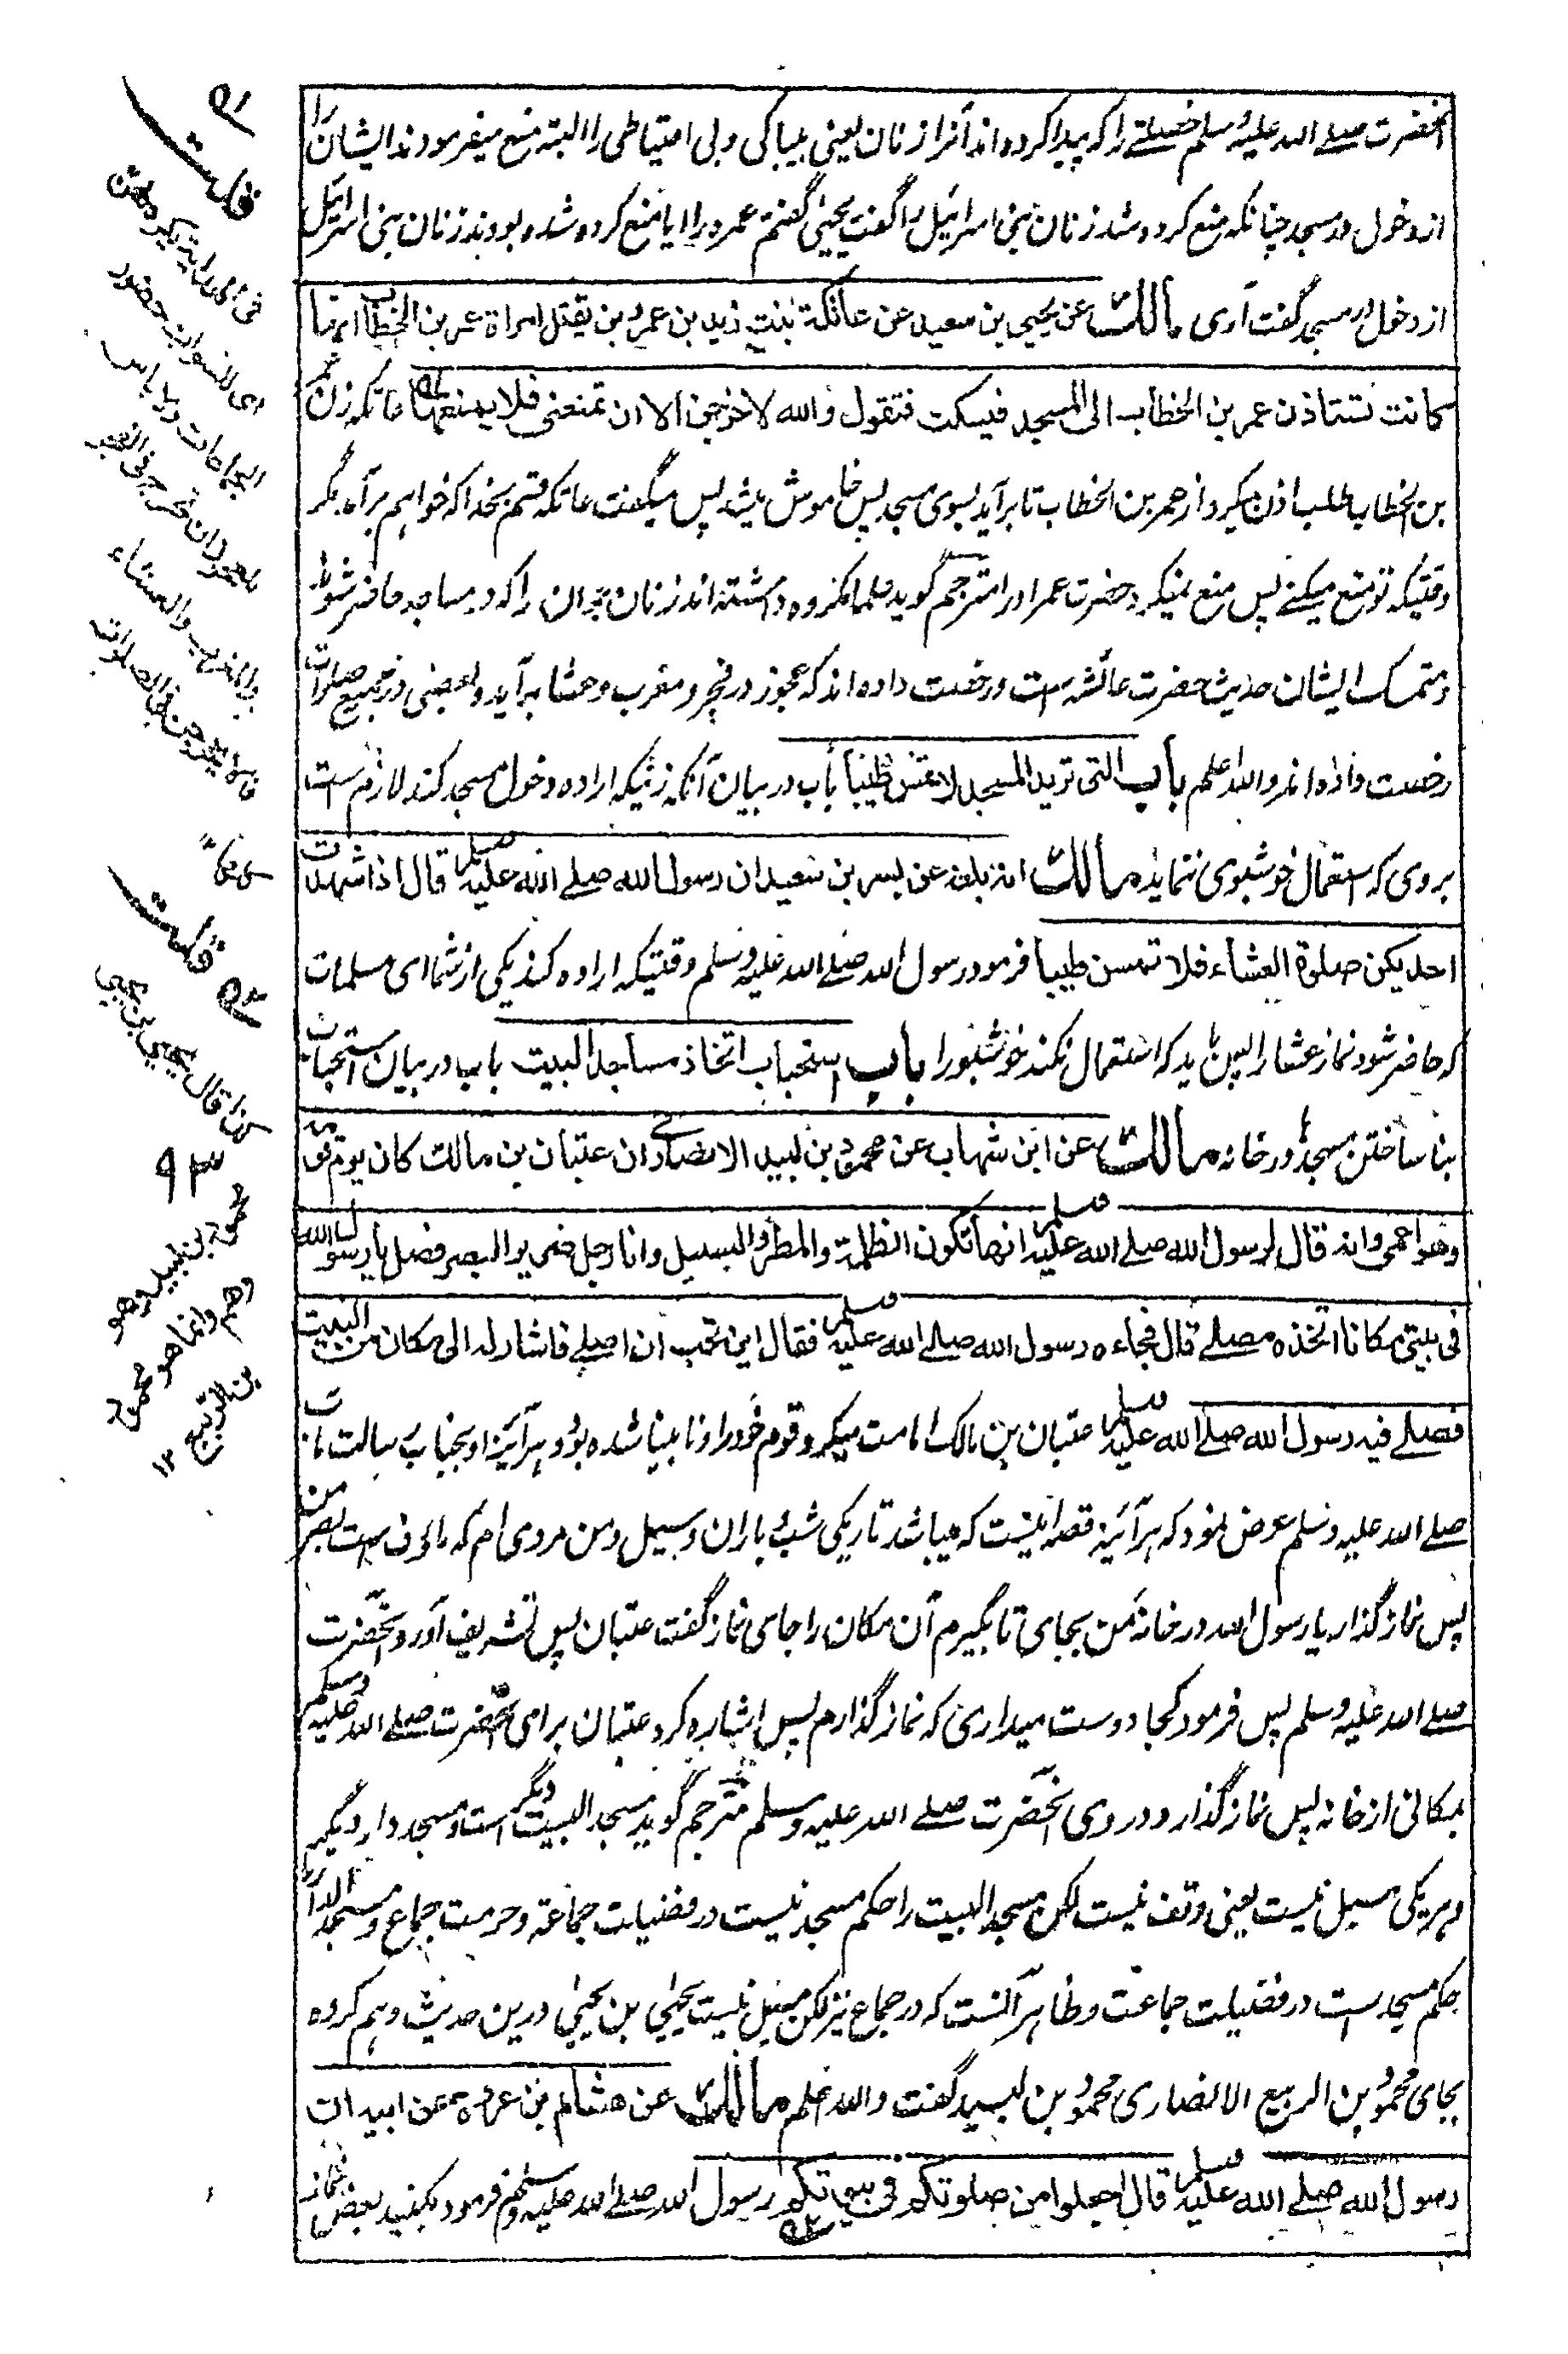 آنحضرت صلے الله علیه وسلم خصلتے را که پیدا کرده اند آنرا زنان یعنی بیباکی و بی احتیاطی را البته منع میفرمودند ایشان را
از دخول در مسجد چنانکه منع کرده شد زنان بنی اسرائیل را گفت یحیی گفتم عمره را ایا منع کرده شده بودند زنان بنی اسرائیل
از دخول در مسجد گفت آری مالك عن یحیی بن سعید عن عاتکة بنت زید بن عمرو بن نفیل امراة عمر بن الخطاب انها
کانت تستاذن عمر بن الخطاب الی المسجد فیسکت فتقول والله لاخرجن الا ان تمنعنی فلا یمنعها عاتکه زن عمر
بن الخطاب طلب اذن میکرد از عمر بن الخطاب تا برآید بسوی مسجد پس خاموش میشد پس میگفت عاتکه قسم بخدا که خواهم برآمد مگر
وقتیکه تو منع میکنے پس منع نمیکرد حضرت عمر او را مترجم گوید علما مکروه داشته اند زنان جوان را که در مساجد حاضر شوند
و متمسک ایشان حدیث حضرت عائشه ست و رخصت داده اند که عجوز در فجر و مغرب و عشا برآید و بعضی در جمیع صلوات
رخصت داده اند والله اعلم باب التی ترید المسجد لا تمس طیبا باب در بیان آنکه زنیکه اراده دخول مسجد کند لازم ست
بروی که استعمال خوشبوی ننماید مالك انه بلغه عن بسر بن سعید ان رسول الله صلے الله علیه وسلم قال اذا شهدت
احدیکن صلوة العشاء فلا تمسن طیبا فرمود رسول الله صلے الله علیه وسلم وقتیکه اراده کند یکی از شما ای مسلمات
که حاضر شود نماز عشا را پس باید که استعمال نکند خوشبو را باب استحباب اتخاذ مساجد البیت باب در بیان استحباب
بنا ساختن مسجد در خانه مالك عن ابن شهاب عن محمود بن لبید الانصاری ان عتبان بن مالك کان یوم قومه
وهو اعمی وانه قال لرسول الله صلے الله علیه وسلم انها تکون الظلمة والمطر والسیل وانا رجل ضریر البصر فصل یا رسول الله
فی بیتی مکانا اتخذه مصلے قال فجاءه رسول الله صلے الله علیه وسلم فقال این تحب ان اصلے فاشار له الی مکان من البیت
فصلے فیه رسول الله صلے الله علیه وسلم عتبان بن مالک امامت میکرد قوم خود را و نابینا شده بود و هرآئینه او بجناب رسالت مآب
صلے الله علیه وسلم عرض نمود که هرآئینه قصه اینست که میباشد تاریکی شب و باران و سیل و من مردی ام که ماؤف ست بصر من
پس نماز گذار یا رسول الله در خانه من بجای تا بگیرم آن مکان را جای نماز گفت عتبان پس تشریف آورد آنحضرت
صلے الله علیه وسلم پس فرمود کجا دوست میداری که نماز گذارم پس اشاره کرد عتبان برای آنحضرت صلے الله علیه وسلم
بمکانی از خانه پس نماز گذارد در وی آنحضرت صلے الله علیه وسلم مترجم گوید مسجد البیت دیگر است و مسجد دار دیگر
و هر یکی مسبل نیست یعنی وقف نیست لکن مسجد البیت را حکم مسجد نیست در فضیلت جماعة و حرمت جماع و مسجد الدار را
حکم مسجد ست در فضیلت جماعت و ظاهر آنست که در جماع نیز لکن مسبل نیست یحیی بن یحیی درین حدیث وهم کرده
بجای محمود بن الربیع الانصاری محمود بن لبید گفت والله اعلم مالك عن هشام بن عروة عن ابیه ان
رسول الله صلے الله علیه وسلم قال اجعلوا من صلوتکم فی بیوتکم رسول الله صلے الله علیه وسلم فرمود بکنید بعض نماز
۵۱
قلت
للنسوان حضور
الجماعات ولا باس
للعجوز ان تخرج فی الفجر
والمغرب والعشاء
۵۲ قلت
کذا قال یحیی بن یحیی
۹۳
محمود بن لبید وهو
وهم وانما هو محمود
بن الربیع ۱۲